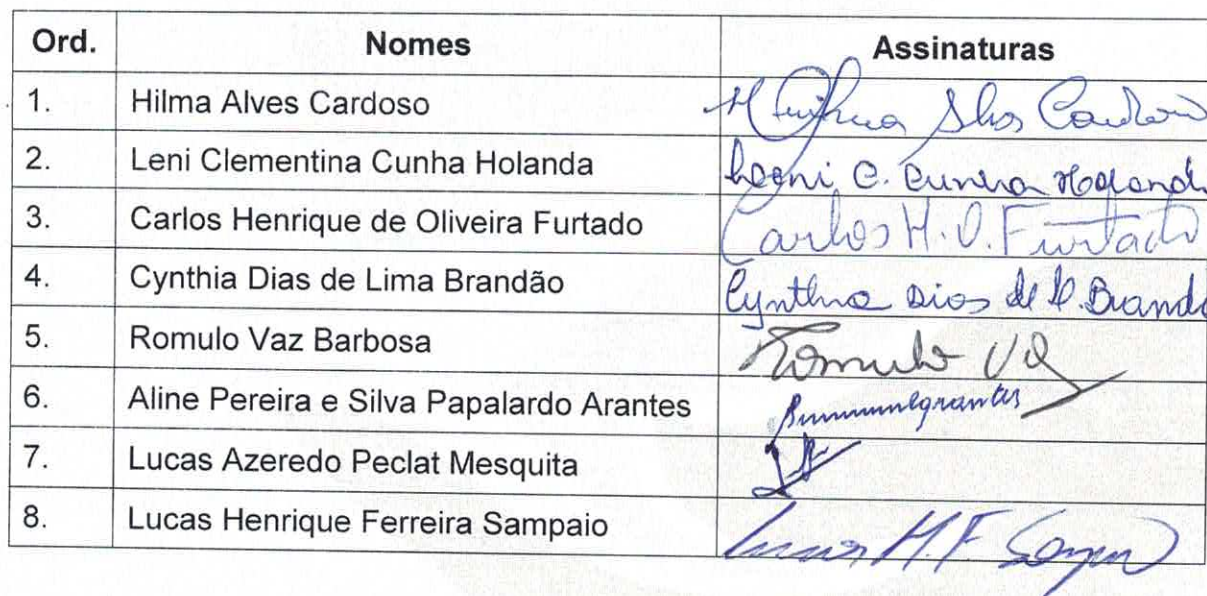 Ord. Nomes Assinaturas
1. Hilma Alves Cardoso
2. Leni Clementina Cunha Holanda C. Cunha Holanda
3. Carlos Henrique de Oliveira Furtado Carlos H. O. Furtado
4. Cynthia Dias de Lima Brandão Cynthia Dias de L. Brandã
5. Romulo Vaz Barbosa Romulo
6. Aline Pereira e Silva Papalardo Arantes
7. Lucas Azeredo Peclat Mesquita
8. Lucas Henrique Ferreira Sampaio Lucas H. F.